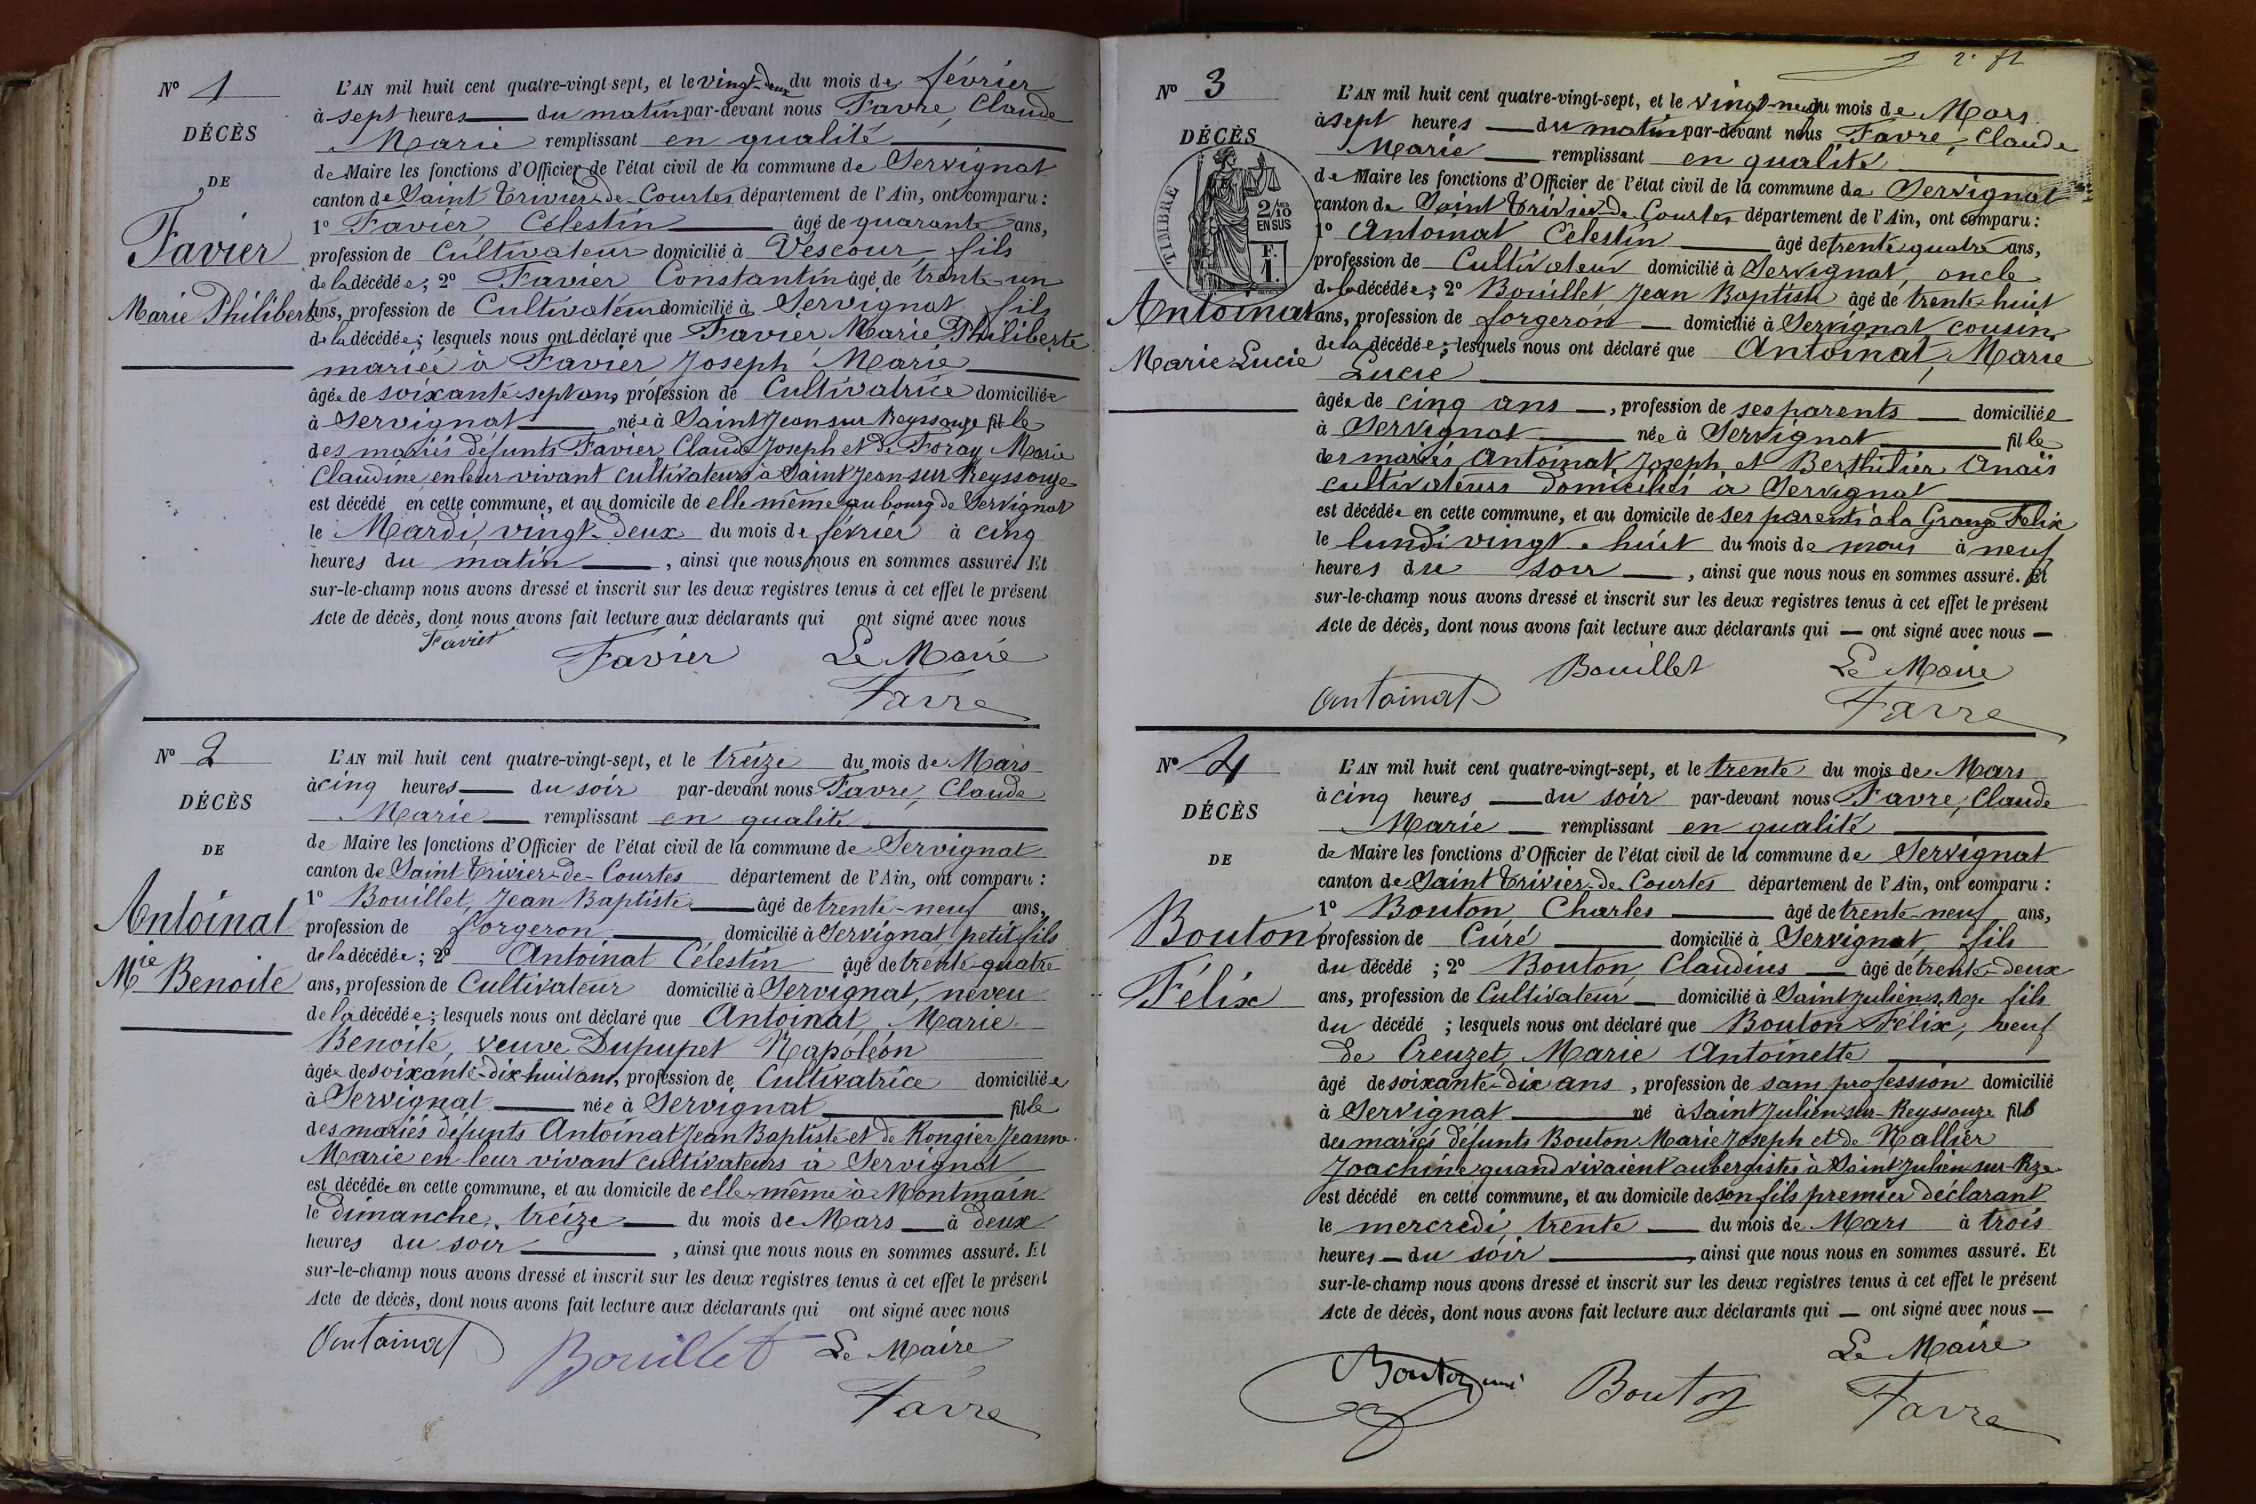 N° 1
DÉCÈS
DE
Favier
Marie Philiberte
L'AN mil huit cent quatre-vingt-sept, et le vingt-deux du mois de février
à sept heures du matin par-devant nous Favre, Claude
Marie remplissant en qualité
de Maire les fonctions d'Officier de l'état civil de la commune de Servignat
canton de Saint Trivier-de-Courtes département de l'Ain, ont comparu :
1° Favier Célestin âgé de quarante ans,
profession de Cultivateur domicilié à Vescour, fils
de la décédée ; 2° Favier Constantin âgé de trente-un
ans, profession de Cultivateur domicilié à Servignat, fils
de la décédée ; lesquels nous ont déclaré que Favier Marie Philiberte
mariée à Favier Joseph Marie
âgée de soixante sept ans, profession de Cultivatrice domiciliée
à Servignat née à Saint Jean sur Reyssouze fille
des mariés défunts Favier Claude Joseph et de Foray Marie
Claudine en leur vivant cultivateurs à Saint Jean-sur Reyssouze
est décédé en cette commune, et au domicile de elle même au bourg de Servignat
le Mardi, vingt-deux du mois de février à cinq
heures du matin , ainsi que nous nous en sommes assuré. Et
sur-le-champ nous avons dressé et inscrit sur les deux registres tenus à cet effet le présent
Acte de décès, dont nous avons fait lecture aux déclarants qui ont signé avec nous
Favier Favier Le Maire
Favre
N° 2
DÉCÈS
DE
Antoinat
Mie Benoite
L'AN mil huit cent quatre-vingt-sept, et le treize du mois de Mars
à cinq heures du soir par-devant nous Favre, Claude
Marie remplissant en qualité
de Maire les fonctions d'Officier de l'état civil de la commune de Servignat
canton de Saint Trivier-de-Courtes département de l'Ain, ont comparu :
1° Bouillet, Jean Baptiste âgé de trente-neuf ans,
profession de forgeron domicilié à Servignat, petit fils
de la décédée ; 2° Antoinat Célestin âgé de trente-quatre
ans, profession de Cultivateur domicilié à Servignat, neveu
de la décédée ; lesquels nous ont déclaré que Antoinat, Marie
Benoite, veuve Dupupet Napoléon
âgée de soixante-dix-huit ans, profession de Cultivatrice domiciliée
à Servignat née à Servignat fille
des mariés défunts Antoinat Jean Baptiste et de Rongier Jeanne
Marie en leur vivant cultivateurs à Servignat
est décédée en cette commune, et au domicile de elle-même à Montmain
le dimanche, treize du mois de Mars à deux
heures du soir , ainsi que nous nous en sommes assuré. Et
sur-le-champ nous avons dressé et inscrit sur les deux registres tenus à cet effet le présent
Acte de décès, dont nous avons fait lecture aux déclarants qui ont signé avec nous
Antoinat Bouillet Le Maire
Favre
N° 3
DÉCÈS
TIMBRE
2/10 EN SUS
F. 1
Antoinat
Marie Lucie
L'AN mil huit cent quatre-vingt-sept, et le vingt-neuf du mois de Mars
à sept heures du matin par-devant nous Favre, Claude
Marie remplissant en qualité
de Maire les fonctions d'Officier de l'état civil de la commune de Servignat
canton de Saint Trivier-de Courtes département de l'Ain, ont comparu :
1° Antoinat Célestin âgé de trente quatre ans,
profession de Cultivateur domicilié à Servignat, oncle
de la décédée ; 2° Bouillet Jean Baptiste âgé de trente-huit
ans, profession de forgeron domicilié à Servignat, cousin
de la décédée ; lesquels nous ont déclaré que Antoinat, Marie
Lucie
âgée de cinq ans , profession de ses parents domiciliée
à Servignat née à Servignat fille
des mariés Antoinat, Joseph, et Berthilier Anaïs
cultivateurs domiciliés à Servignat
est décédée en cette commune, et au domicile de ses parents à la Grange Felix
le lundi vingt-huit du mois de mars à neuf
heures du soir , ainsi que nous nous en sommes assuré. Et
sur-le-champ nous avons dressé et inscrit sur les deux registres tenus à cet effet le présent
Acte de décès, dont nous avons fait lecture aux déclarants qui — ont signé avec nous —
Antoinat Bouillet Le Maire
Favre
N° 4
DÉCÈS
DE
Bouton
Félix
L'AN mil huit cent quatre-vingt-sept, et le trente du mois de Mars
à cinq heures du soir par-devant nous Favre, Claude
Marie remplissant en qualité
de Maire les fonctions d'Officier de l'état civil de la commune de Servignat
canton de Saint Trivier-de Courtes département de l'Ain, ont comparu :
1° Bouton, Charles âgé de trente-neuf ans,
profession de Curé domicilié à Servignat, fils
du décédé ; 2° Bouton, Claudius âgé de trente-deux
ans, profession de Cultivateur domicilié à Saint Julien s. Rze fils
du décédé ; lesquels nous ont déclaré que Bouton Félix, veuf
de Creuzet, Marie Antoinette
âgé de soixante-dix ans , profession de sans profession domicilié
à Servignat né à Saint Julien-sur-Reyssouze fils
des mariés défunts Bouton Marie Joseph et de Nallier
Joachine quand vivaient aubergistes à Saint Julien-sur-Rze
est décédé en cette commune, et au domicile de son fils premier déclarant
le mercredi, trente du mois de Mars à trois
heures du soir , ainsi que nous nous en sommes assuré. Et
sur-le-champ nous avons dressé et inscrit sur les deux registres tenus à cet effet le présent
Acte de décès, dont nous avons fait lecture aux déclarants qui — ont signé avec nous —
Le Maire
Bouton Bouton Favre